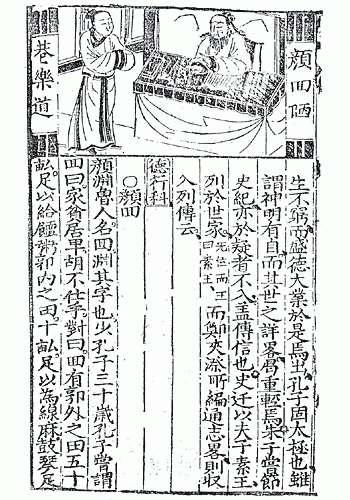 顏回陋
巷樂道
生不窮而盛德大業於是焉出孔子固太極也雖
謂神明有自而其世之詳畧焉重輕焉朱子嘗節
史紀亦於疑者不入盖傳信也史迁以夫子素王
列於世家无位而王曰素王而鄭夾漈所編通志畧則収
入列傳云
德行科
○顏回
顏淵魯人名回淵其字也少孔子三十歲孔子嘗謂
回曰家貧居卑胡不仕乎對曰回有郭外之田五十
畝足以給饘粥郭内之田十畝足以為絲麻鼓琴足